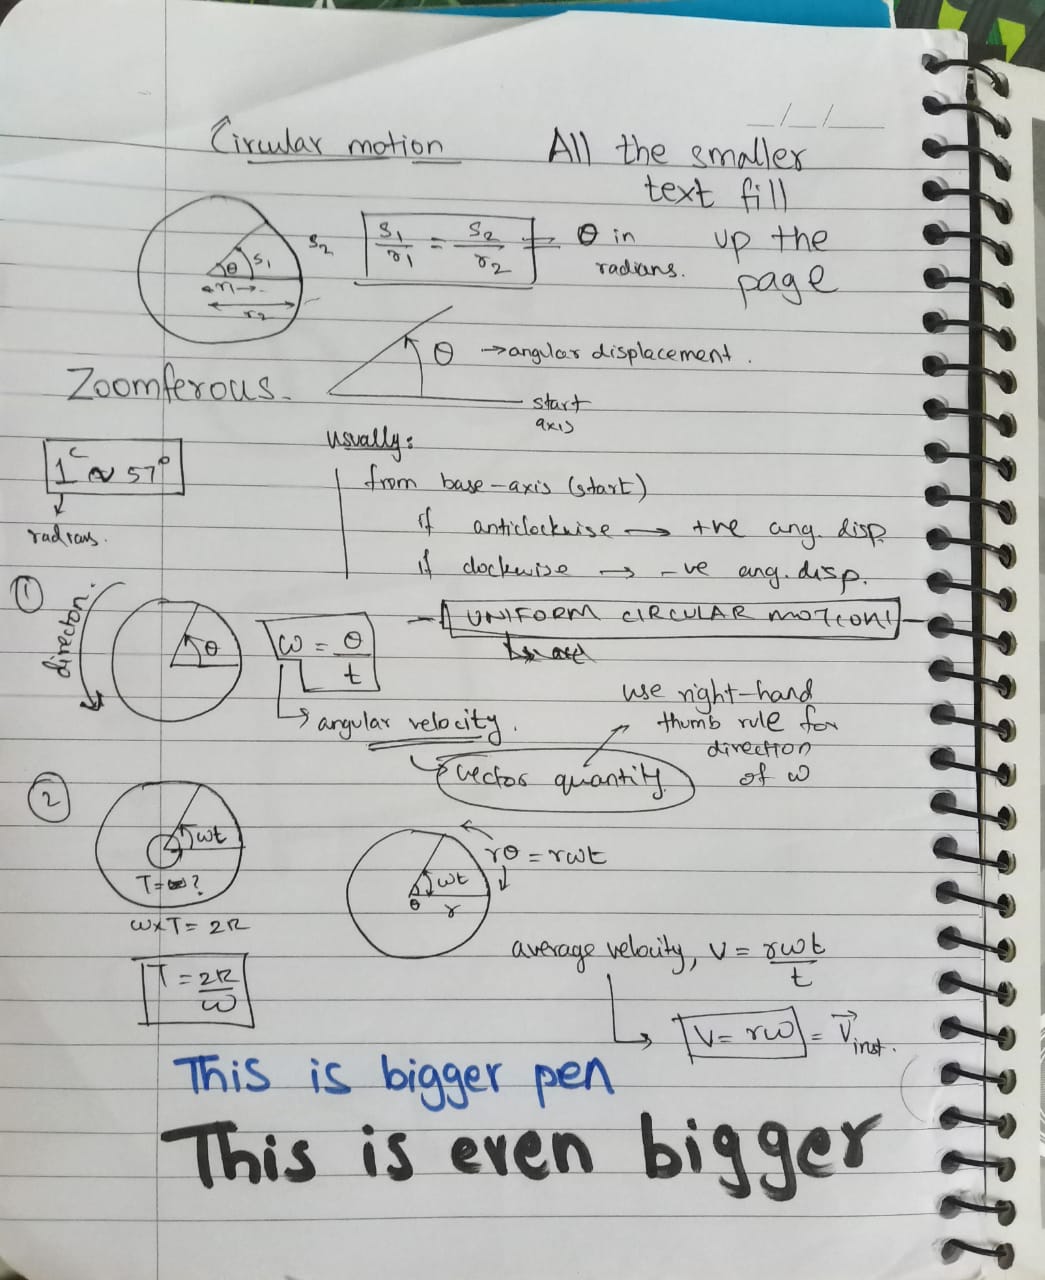 Circular motion
All the smaller
text fill
up the
page
S₁/r₁ = S₂/r₂ → θ in
radians.
S₂
θ S₁
r₁
r₂
θ → angular displacement.
Zoomferous.
start
axis
usually:
1ᶜ ~ 57°
radians.
from base-axis (start)
if anticlockwise → +ve ang. disp.
if clockwise → -ve ang. disp.
UNIFORM CIRCULAR MOTION!
①
direction:
θ
ω = θ/t
angular velocity.
vector quantity
use right-hand
thumb rule for
direction
of ω
②
ωt
T = ?
ω×T = 2π
T = 2π/ω
rθ = rωt
ωt
θ r
average velocity, v = rωt/t
V = rω = V⃗inst.
This is bigger pen
This is even bigger